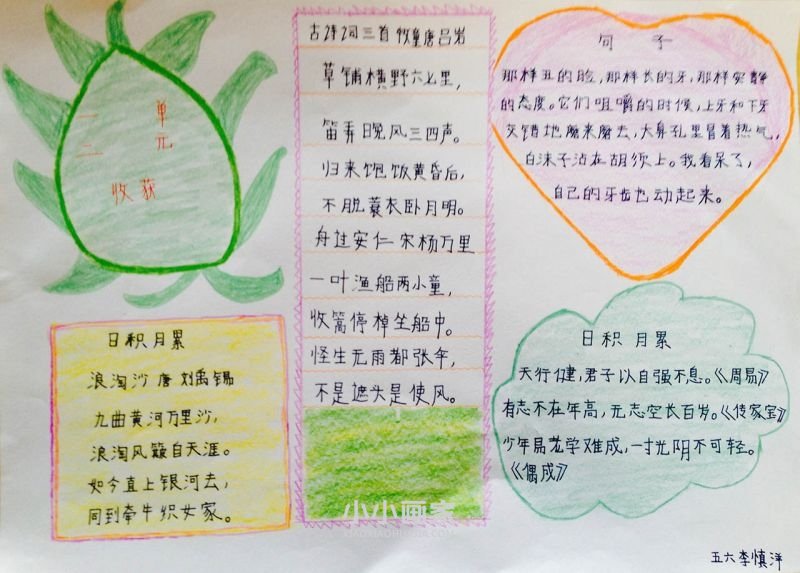 二三
单元
收获
古诗词三首 牧童 唐 吕岩
草铺横野六七里，
笛弄晚风三四声。
归来饱饭黄昏后，
不脱蓑衣卧月明。
舟过安仁 宋 杨万里
一叶渔船两小童，
收篙停棹坐船中。
怪生无雨都张伞，
不是遮头是使风。
句子
那样丑的脸，那样长的牙，那样安静
的态度。它们咀嚼的时候，上牙和下牙
交错地磨来磨去，大鼻孔里冒着热气，
白沫子沾在胡须上。我看呆了，
自己的牙齿也动起来。
日积月累
浪淘沙 唐 刘禹锡
九曲黄河万里沙，
浪淘风簸自天涯。
如今直上银河去，
同到牵牛织女家。
日积月累
天行健，君子以自强不息。《周易》
有志不在年高，无志空长百岁。《传家宝》
少年易老学难成，一寸光阴不可轻。
《偶成》
小小画家
五六 李慎洋